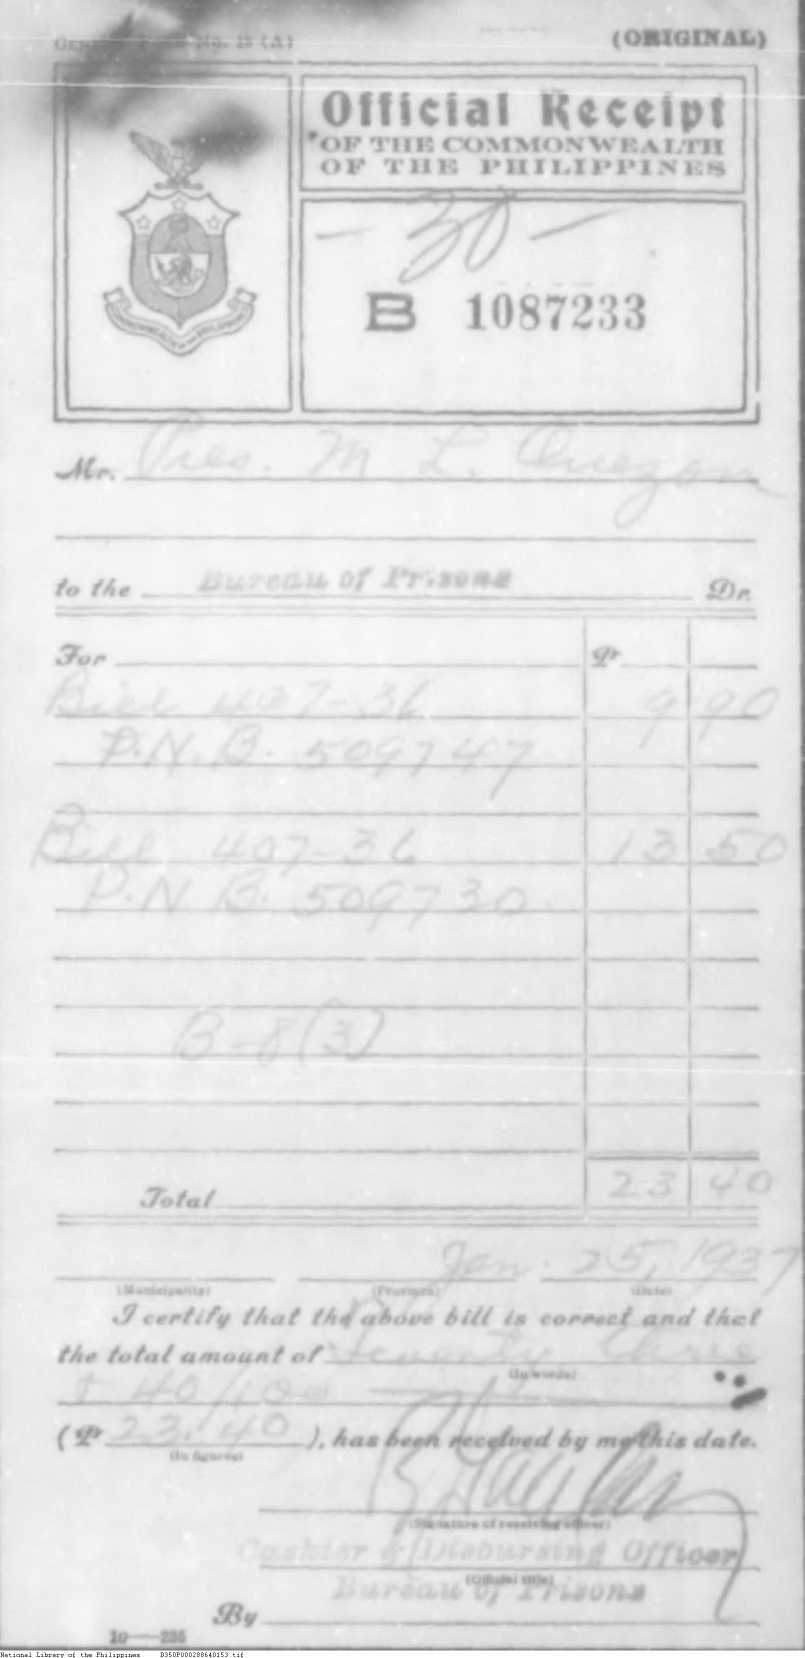 General Form No. 13 (A)
(ORIGINAL)
Official Receipt
OF THE COMMONWEALTH
OF THE PHILIPPINES
- 30 -
B 1087233
COMMONWEALTH OF THE PHILIPPINES
Mr. Pres. M L. Quezon
to the Bureau of Prisons Dr.
For ₱
Bill 407-36 9 90
P.N.B. 509747
Bill 407-36 13 50
P.N B. 509730
B-8(3)
Total 23 40
Jan. 25, 1937
(Municipality) (Province) (Date)
I certify that the above bill is correct and that
the total amount of Twenty three
(In words)
+ 40/100
(₱ 23.40 ), has been received by me this date.
(In figures)
(Signature of receiving officer)
Cashier & Disbursing Officer
(Official title)
Bureau of Prisons
By
10—235
National Library of the Philippines D350P000288640153.tif